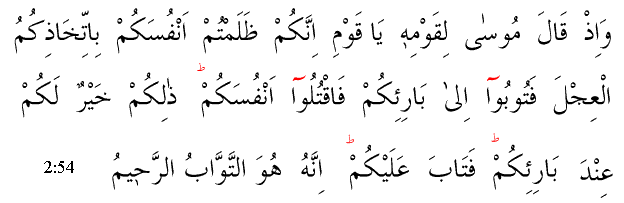 وَاِذْ قَالَ مُوسٰى لِقَوْمِهٖ يَا قَوْمِ اِنَّكُمْ ظَلَمْتُمْ اَنْفُسَكُمْ بِاتِّخَاذِكُمُ
الْعِجْلَ فَتُوبُوٓا اِلىٰ بَارِئِكُمْ فَاقْتُلُوٓا اَنْفُسَكُمْ ؕ ذٰلِكُمْ خَيْرٌ لَكُمْ
عِنْدَ بَارِئِكُمْ ؕ فَتَابَ عَلَيْكُمْ ؕ اِنَّهُ هُوَ التَّوَّابُ الرَّحٖيمُ 2:54